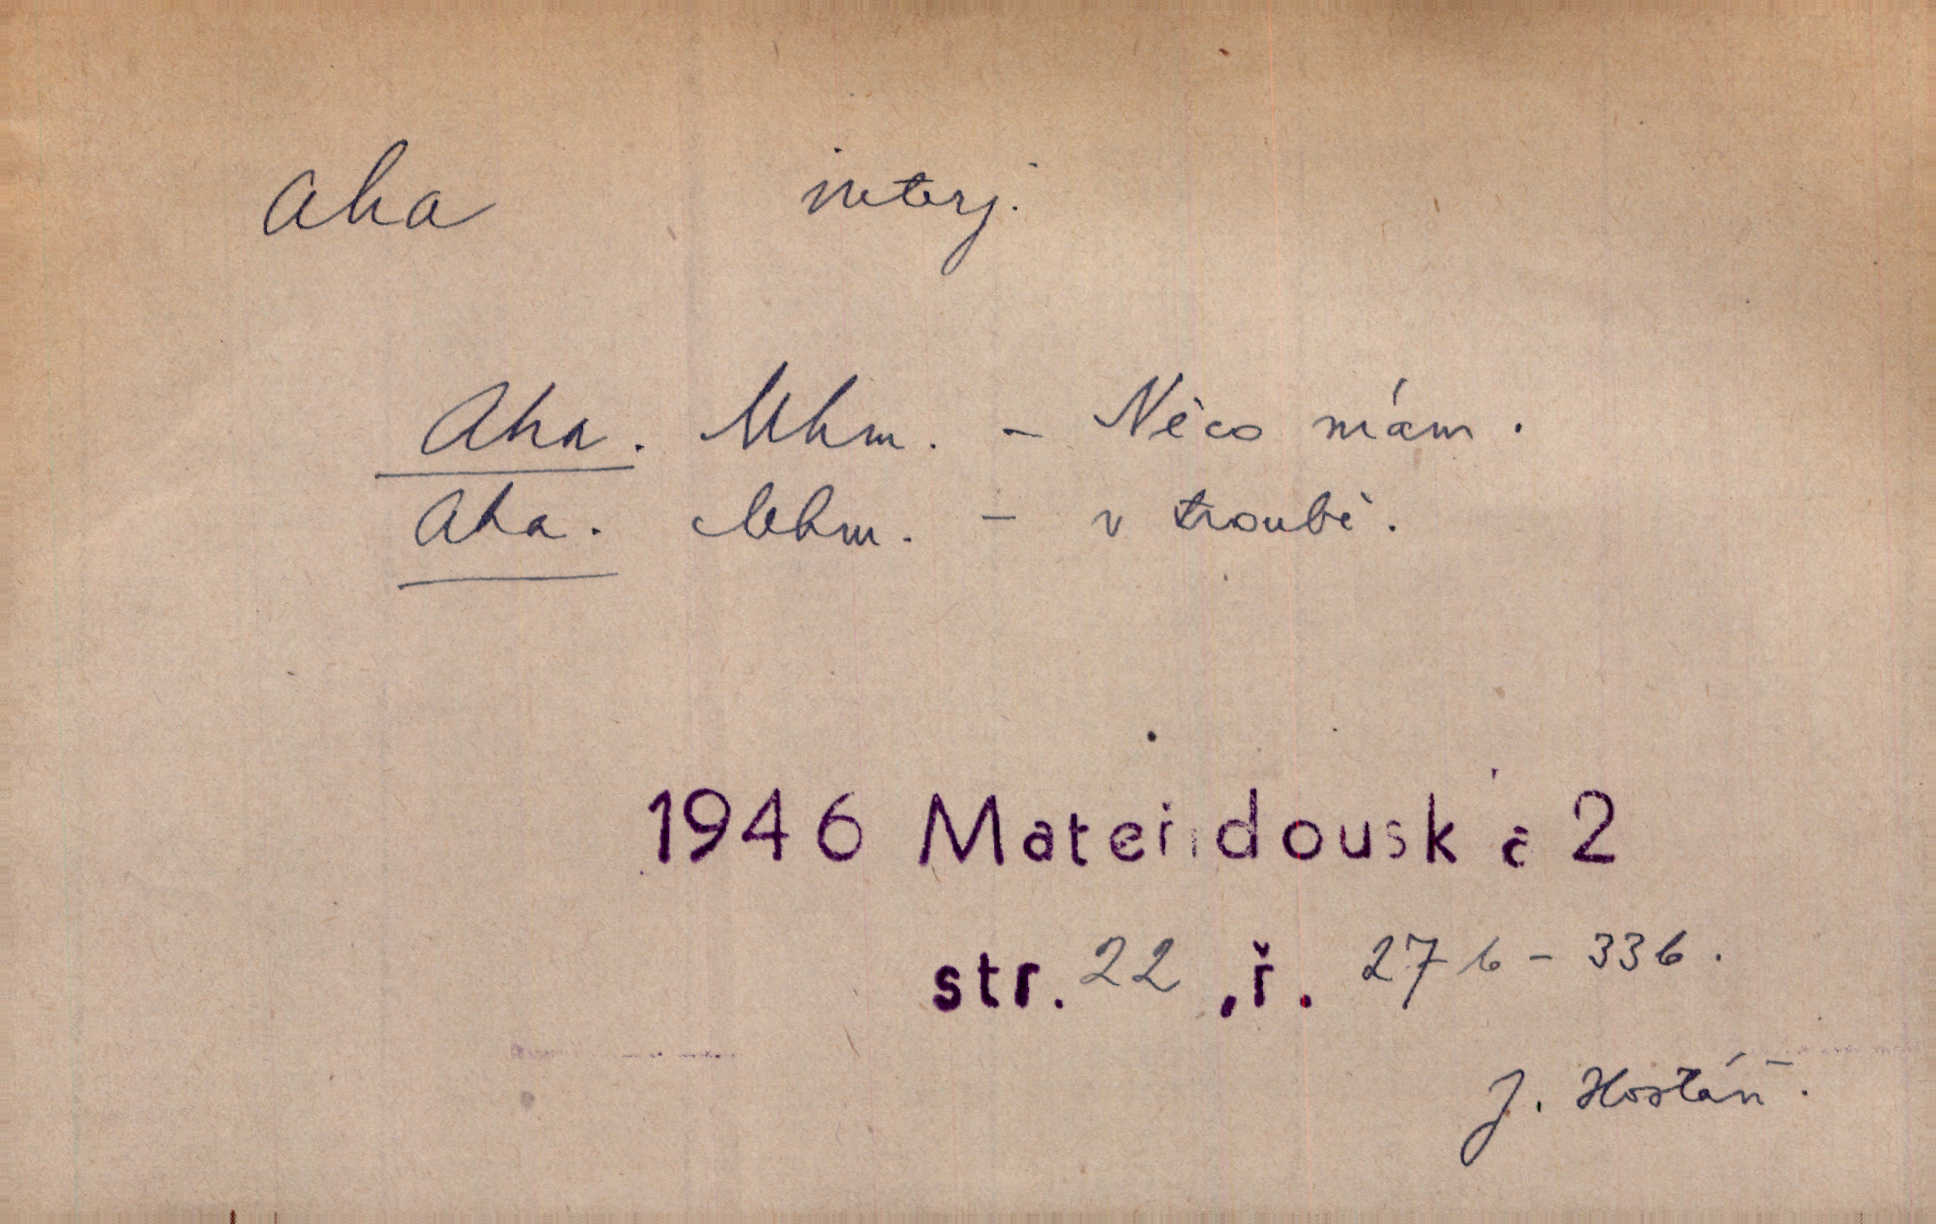 aha interj.
Aha. Mhm. – Něco mám.
Aha. Mhm. – v troubě.
1946 Mateřídouška 2
str. 22, ř. 27 b – 33 b.
J. Hostáň.